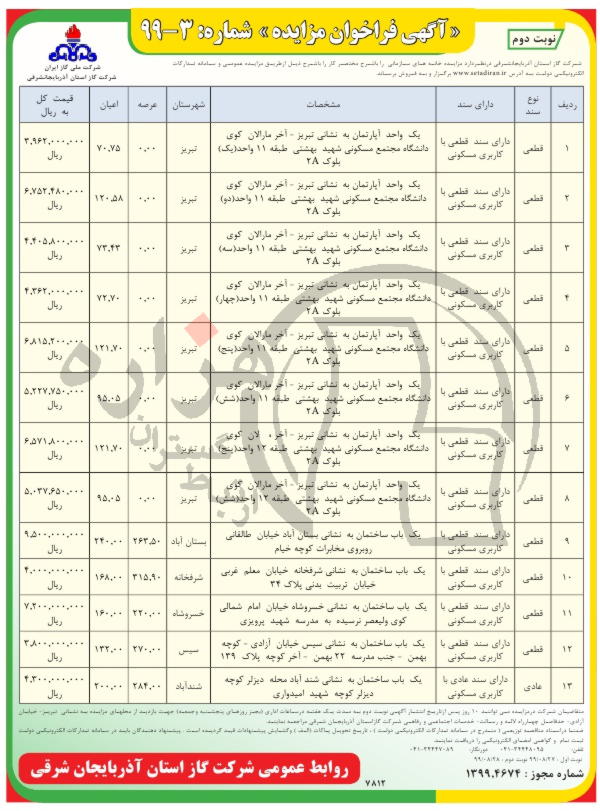 «آگهی فراخوان مزایده» شماره: ۳-۹۹
نوبت دوم
شرکت ملی گاز ایران
شرکت گاز استان آذربایجانشرقی
شرکت گاز استان آذربایجانشرقی درنظردارد مزایده خانه های سازمانی را باشرح مختصر کار را باشرح ذیل ازطریق مزایده عمومی و سامانه تدارکات
الکترونیکی دولت به آدرس www.setadiran.ir برگزار و به فروش برساند.
ردیف نوع سند دارای سند مشخصات شهرستان عرصه اعیان قیمت کل به ریال
۱ قطعی دارای سند قطعی با کاربری مسکونی یک واحد آپارتمان به نشانی تبریز - آخر مارالان کوی دانشگاه مجتمع مسکونی شهید بهشتی طبقه ۱۱ واحد(یک) بلوک ۲A تبریز ۰.۰۰ ۷۰.۷۵ ۳,۹۶۲,۰۰۰,۰۰۰ ریال
۲ قطعی دارای سند قطعی با کاربری مسکونی یک واحد آپارتمان به نشانی تبریز - آخر مارالان کوی دانشگاه مجتمع مسکونی شهید بهشتی طبقه ۱۱ واحد(دو) بلوک ۲A تبریز ۰.۰۰ ۱۲۰.۵۸ ۶,۷۵۲,۴۸۰,۰۰۰ ریال
۳ قطعی دارای سند قطعی با کاربری مسکونی یک واحد آپارتمان به نشانی تبریز - آخر مارالان کوی دانشگاه مجتمع مسکونی شهید بهشتی طبقه ۱۱ واحد(سه) بلوک ۲A تبریز ۰.۰۰ ۷۳.۴۳ ۴,۴۰۵,۸۰۰,۰۰۰ ریال
۴ قطعی دارای سند قطعی با کاربری مسکونی یک واحد آپارتمان به نشانی تبریز - آخر مارالان کوی دانشگاه مجتمع مسکونی شهید بهشتی طبقه ۱۱ واحد(چهار) بلوک ۲A تبریز ۰.۰۰ ۷۲.۷۰ ۴,۳۶۲,۰۰۰,۰۰۰ ریال
۵ قطعی دارای سند قطعی با کاربری مسکونی یک واحد آپارتمان به نشانی تبریز - آخر مارالان کوی دانشگاه مجتمع مسکونی شهید بهشتی طبقه ۱۱ واحد(پنج) بلوک ۲A تبریز ۰.۰۰ ۱۲۱.۷۰ ۶,۸۱۵,۲۰۰,۰۰۰ ریال
۶ قطعی دارای سند قطعی با کاربری مسکونی یک واحد آپارتمان به نشانی تبریز - آخر مارالان کوی دانشگاه مجتمع مسکونی شهید بهشتی طبقه ۱۱ واحد(شش) بلوک ۲A تبریز ۰.۰۰ ۹۵.۰۵ ۵,۲۲۷,۷۵۰,۰۰۰ ریال
۷ قطعی دارای سند قطعی با کاربری مسکونی یک واحد آپارتمان به نشانی تبریز - آخر کوی دانشگاه مجتمع مسکونی شهید بهشتی طبقه ۱۲ واحد(پنج) بلوک ۲A تبریز ۰.۰۰ ۱۲۱.۷۰ ۶,۵۷۱,۸۰۰,۰۰۰ ریال
۸ قطعی دارای سند قطعی با کاربری مسکونی یک واحد آپارتمان به نشانی تبریز - آخر مارالان کوی دانشگاه مجتمع مسکونی شهید بهشتی طبقه ۱۲ واحد(شش) بلوک ۲A تبریز ۰.۰۰ ۹۵.۰۵ ۵,۰۳۷,۶۵۰,۰۰۰ ریال
۹ قطعی دارای سند قطعی با کاربری مسکونی یک باب ساختمان به نشانی بستان آباد خیابان طالقانی روبروی مخابرات کوچه خیام بستان آباد ۲۶۳.۵۰ ۲۴۰.۰۰ ۹,۵۰۰,۰۰۰,۰۰۰ ریال
۱۰ قطعی دارای سند قطعی با کاربری مسکونی یک باب ساختمان به نشانی شرفخانه خیابان معلم غربی خیابان تربیت بدنی پلاک ۳۴ شرفخانه ۳۱۵.۹۰ ۱۶۸.۰۰ ۴,۰۰۰,۰۰۰,۰۰۰ ریال
۱۱ قطعی دارای سند قطعی با کاربری مسکونی یک باب ساختمان به نشانی خسروشاه خیابان امام شمالی کوی ولیعصر نرسیده به مدرسه شهید پرویزی خسروشاه ۲۲۰.۰۰ ۱۶۰.۰۰ ۷,۲۰۰,۰۰۰,۰۰۰ ریال
۱۲ قطعی دارای سند قطعی با کاربری مسکونی یک باب ساختمان به نشانی سیس خیابان آزادی - کوچه بهمن - جنب مدرسه ۲۲ بهمن - آخر کوچه پلاک ۱۳۹ سیس ۲۷۰.۰۰ ۱۳۲.۰۰ ۳,۸۰۰,۰۰۰,۰۰۰ ریال
۱۳ عادی دارای سند عادی با کاربری مسکونی یک باب ساختمان به نشانی شند آباد محله دیزلر کوچه دیزلر کوچه شهید امیدواری شندآباد ۲۸۴.۰۰ ۲۰۰.۰۰ ۴,۳۰۰,۰۰۰,۰۰۰ ریال
متقاضیان شرکت درمزایده می توانند ۱۰ روز پس ازتاریخ انتشار آگهی نوبت دوم به مدت یک هفته درساعات اداری (بجز روزهای پنجشنبه وجمعه) جهت بازدید از محلهای مزایده به نشانی تبریز- خیابان
آزادی- حدفاصل چهارراه لاله و رسالت- خدمات اجتماعی و رفاهی شرکت گازاستان آذربایجان شرقی مراجعه نمایند.
ضمنا دراسناد مناقصه توزیعی ( مندرج در سامانه تدارکات الکترونیکی دولت ) ، تاریخ تحویل پاکات (الف) وگشایش پیشنهادات قید گردیده است. پیشنهاد دهندگان باید در سامانه تدارکات الکترونیکی دولت
ثبت نام و گواهی امضای الکترونیکی را دریافت نمایند.
تلفن: ۰۴۱-۳۴۴۴۸۰۹۵ دورنگار: ۰۴۱-۳۴۴۴۷۰۸۹
نوبت اول : ۹۹/۰۸/۲۷ نوبت دوم : ۹۹/۰۸/۲۸
شماره مجوز : ۱۳۹۹.۴۶۷۴
روابط عمومی شرکت گاز استان آذربایجان شرقی
۷۸۱۲
هزاره